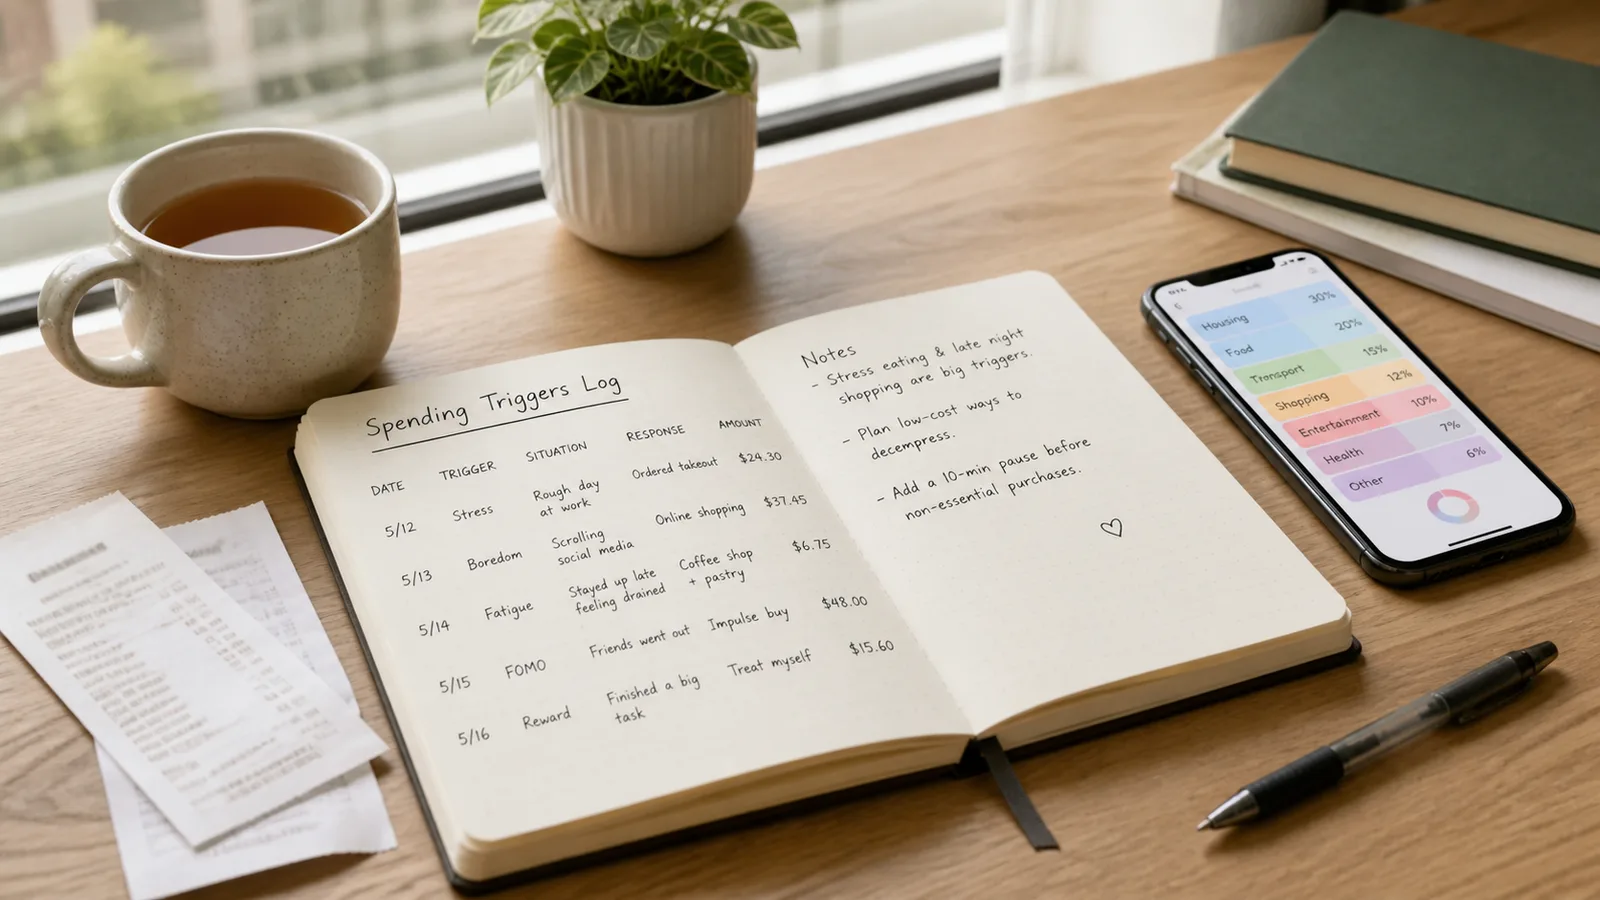 Spending Triggers Log
DATE TRIGGER SITUATION RESPONSE AMOUNT
5/12 Stress Rough day Ordered takeout $24.30
at work
5/13 Boredom Scrolling Online shopping $37.45
social media
5/14 Fatigue Stayed up late Coffee shop $6.75
feeling drained + pastry
5/15 FOMO Friends went out Impulse buy $48.00
5/16 Reward Finished a big Treat myself $15.60
task
Notes
- Stress eating & late night
shopping are big triggers.
- Plan low-cost ways to
decompress.
- Add a 10-min pause before
non-essential purchases.
Housing 30%
Food 20%
Transport 15%
Shopping 12%
Entertainment 10%
Health 7%
Other 6%